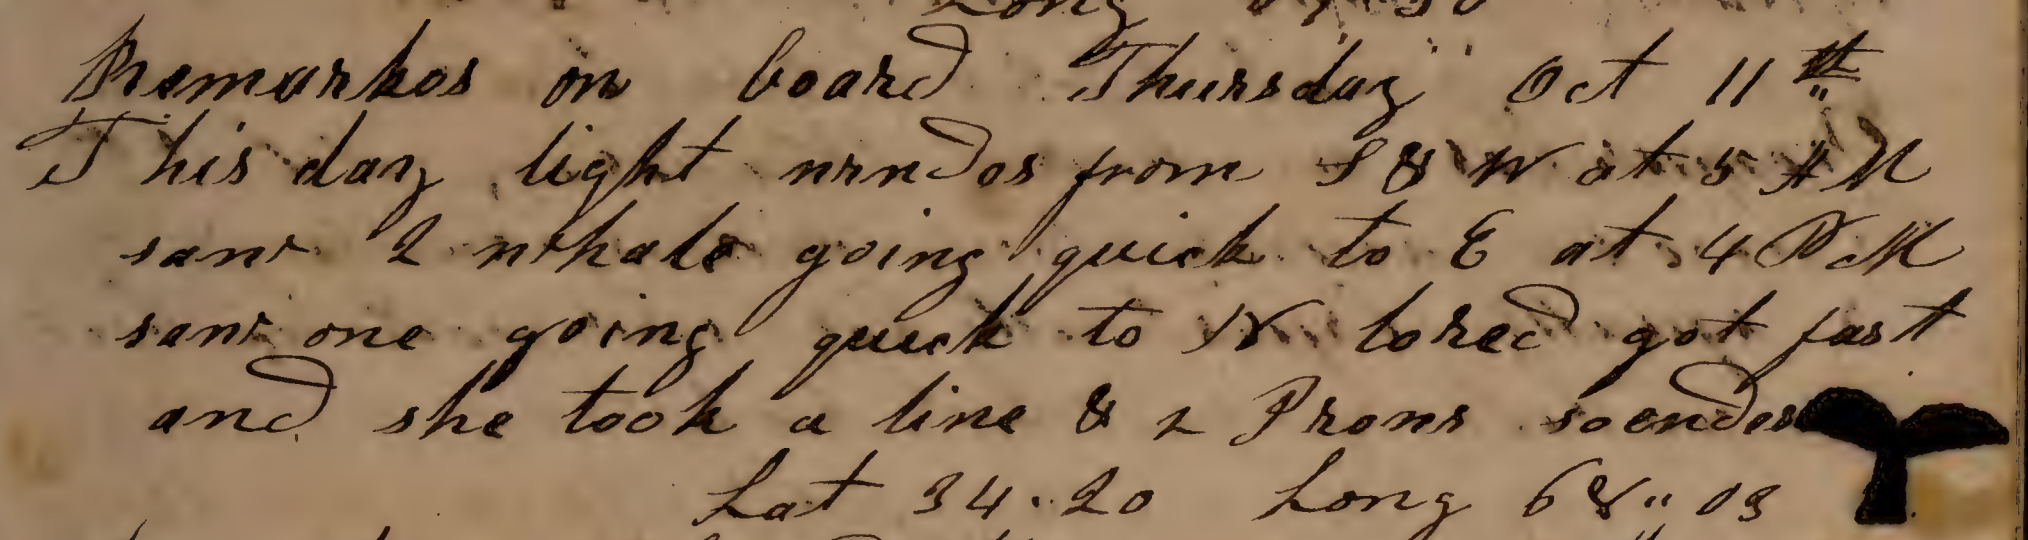 Long
Remarkes on board Thursday Oct 11th
This day light windes from S & W at 5 AM
saw 2 whale going quick to E at 4 PM
saw one going quick to W lored got fast
and she took a line & 2 Irons soendes
Lat 34.20 Long 68" 03